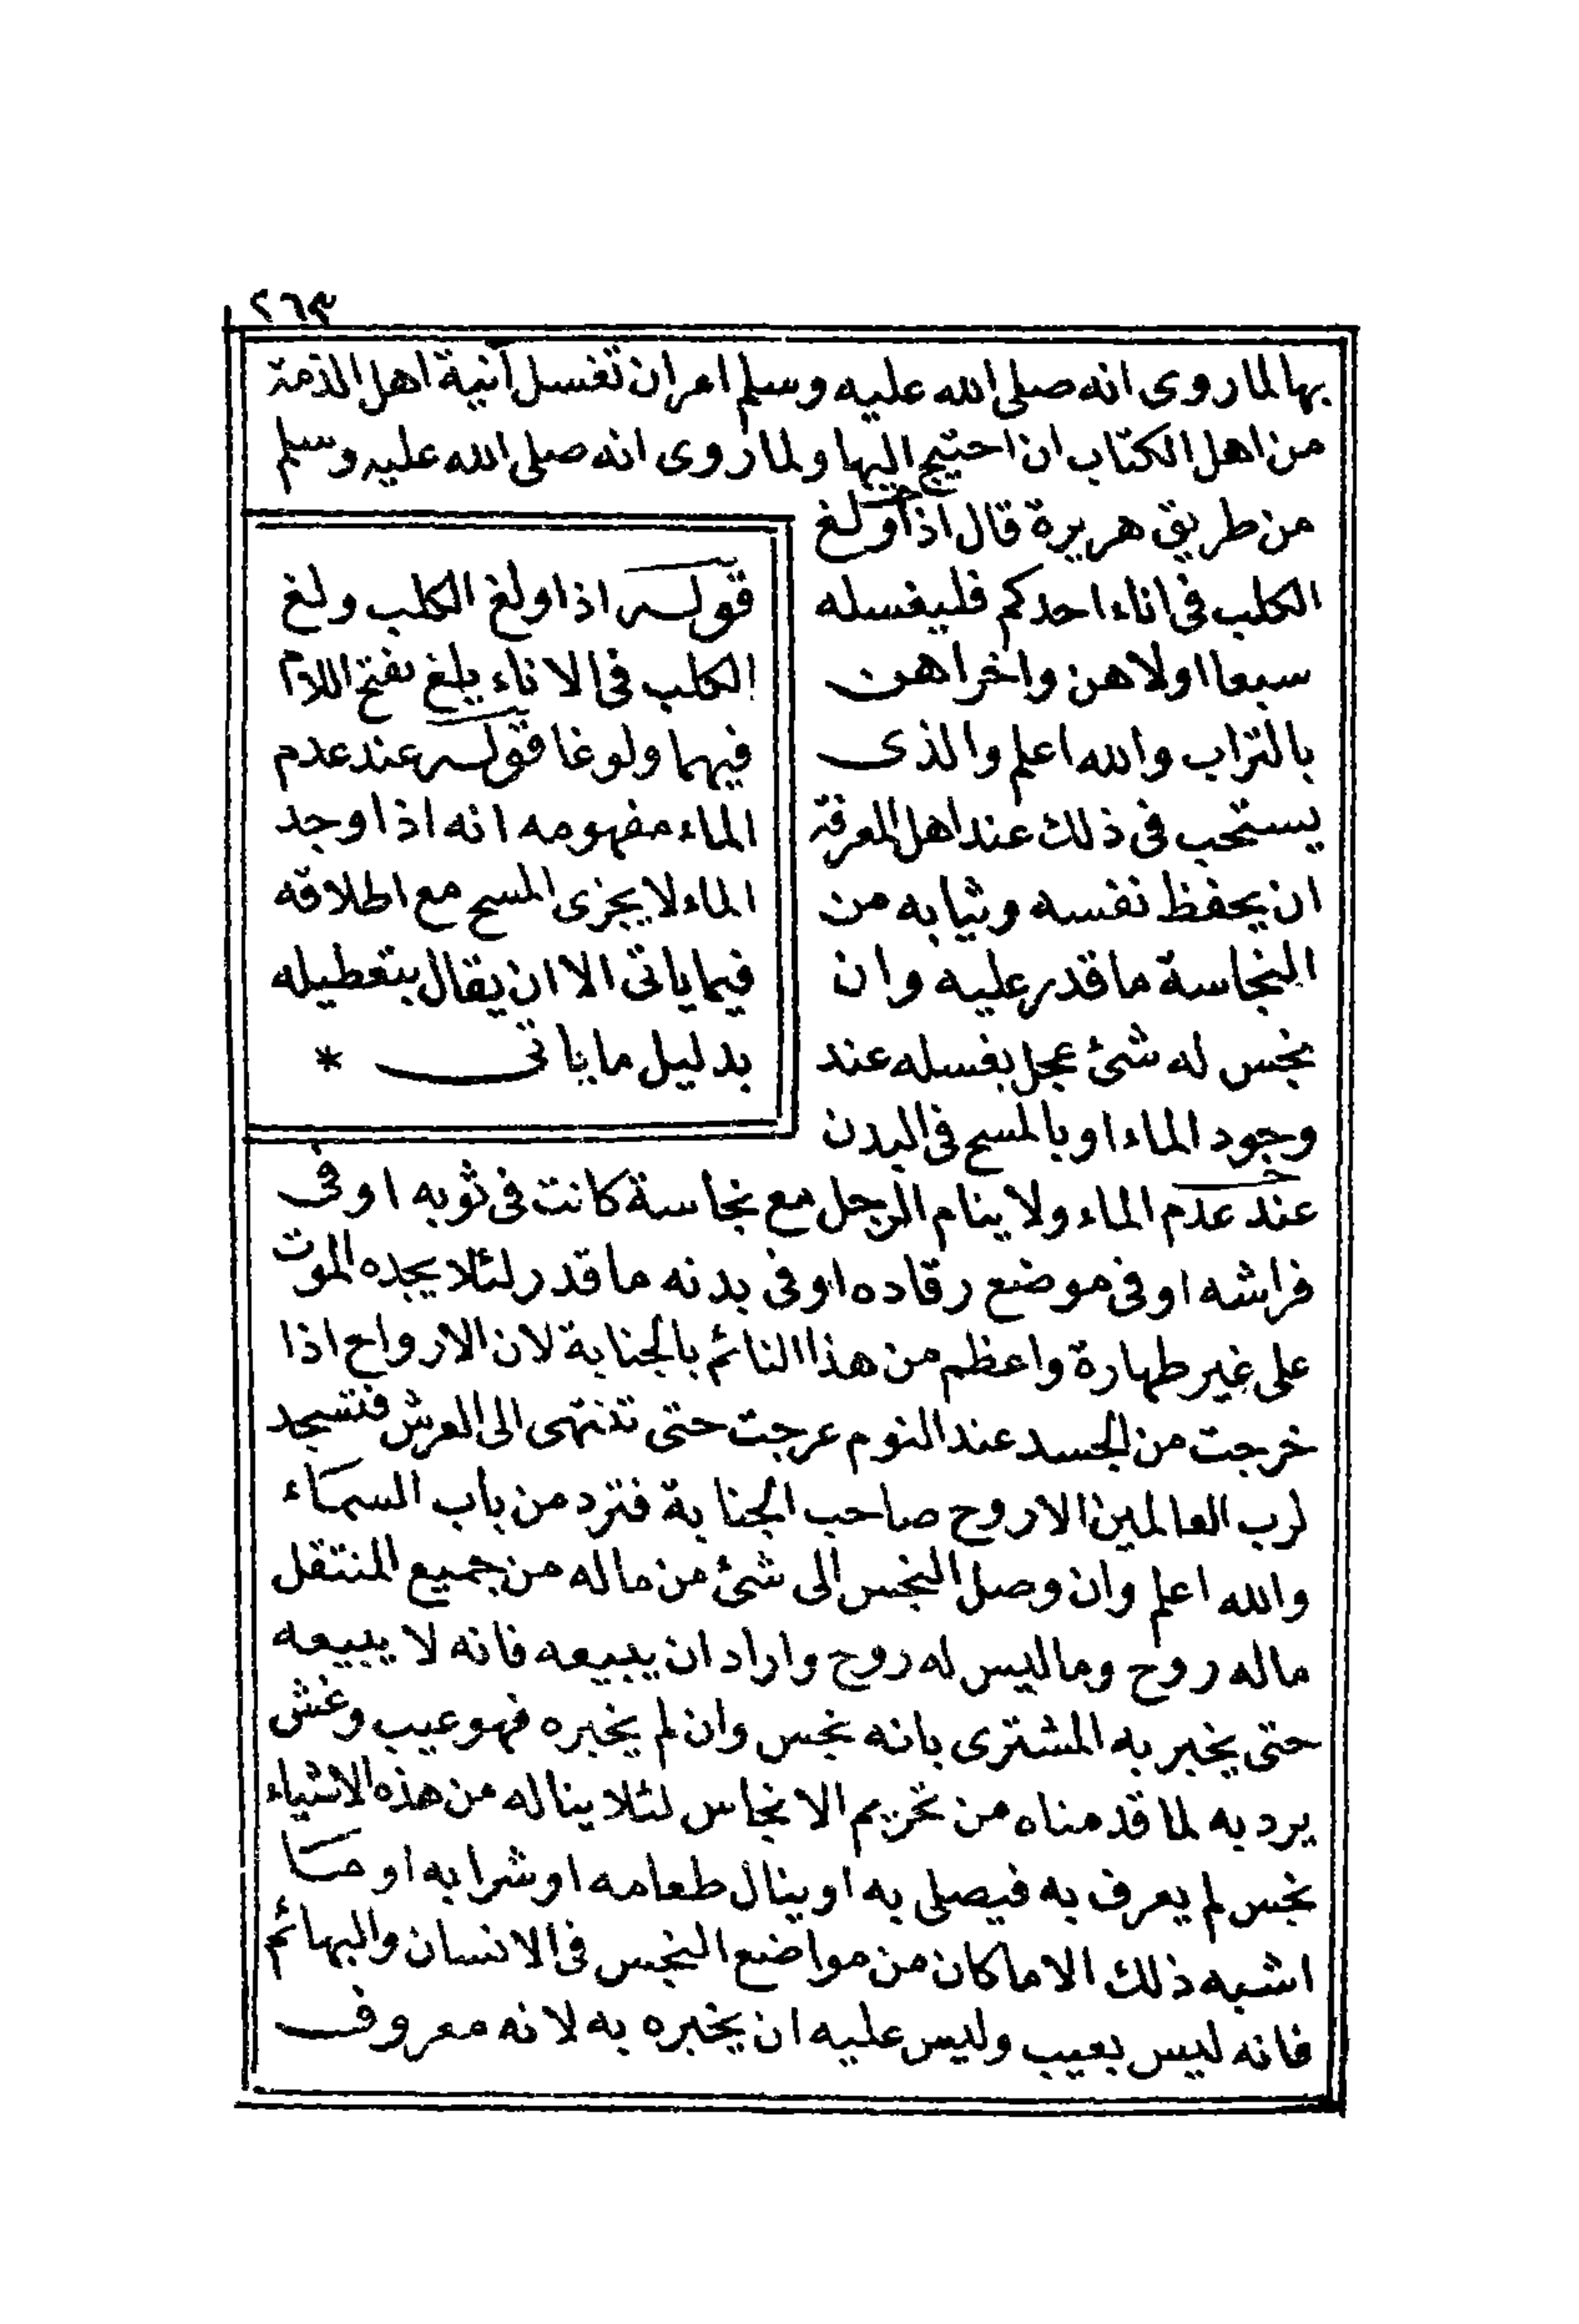 ٢٦٣
بها لما روى انه صلى الله عليه وسلم امر ان تغسل آنية اهل الذمة
من اهل الكتاب ان احتيج اليها ولما روى انه صلى الله عليه وسلم
من طريق هريرة قال اذا ولغ
الكلب فى اناء احدكم فليغسله
سبعا اولاهن واخراهن
بالتراب والله اعلم والذى
يستحب فى ذلك عند اهل المعرفة
ان يحفظ نفسه وثيابه من
النجاسة ما قدر عليه وان
نجس له شئ عجل بغسله عند
وجود الماء او بالمسح فى البدن
عند عدم الماء ولا ينام الرجل مع نجاسة كانت فى ثوبه او فى
فراشه او فى موضع رقاده او فى بدنه ما قدر لئلا يجده الموت
على غير طهارة واعظم من هذا النائم بالجنابة لان الارواح اذا
خرجت من الجسد عند النوم عرجت حتى تنتهى الى العرش فتسجد
لرب العالمين الا روح صاحب الجنابة فترد من باب السماء
والله اعلم وان وصل النجس الى شئ من ماله من جميع المنتقل
ماله روح وما ليس له روح واراد ان يبيعه فانه لا يبيعه
حتى يخبر به المشترى بانه نجس وان لم يخبره فهو عيب وغش
يرد به لما قدمناه من تحريم الانجاس لئلا يناله من هذه الاشياء
نجس لم يعرف به فيصلى به او ينال طعامه او شرابه او ما
اشبه ذلك الا ما كان من مواضع النجس فى الانسان والبهائم
فانه ليس بعيب وليس عليه ان يخبره به لانه معروف
قوله اذا ولغ الكلب ولغ
الكلب فى الاناء يلغ بفتح اللام
فيهما ولوغا قوله عند عدم
الماء مفهومه انه اذا وجد
الماء لا يجزى المسح مع اطلاقه
فيما ياتى الا ان يقال بتعطيله
بدليل ما ياتى *